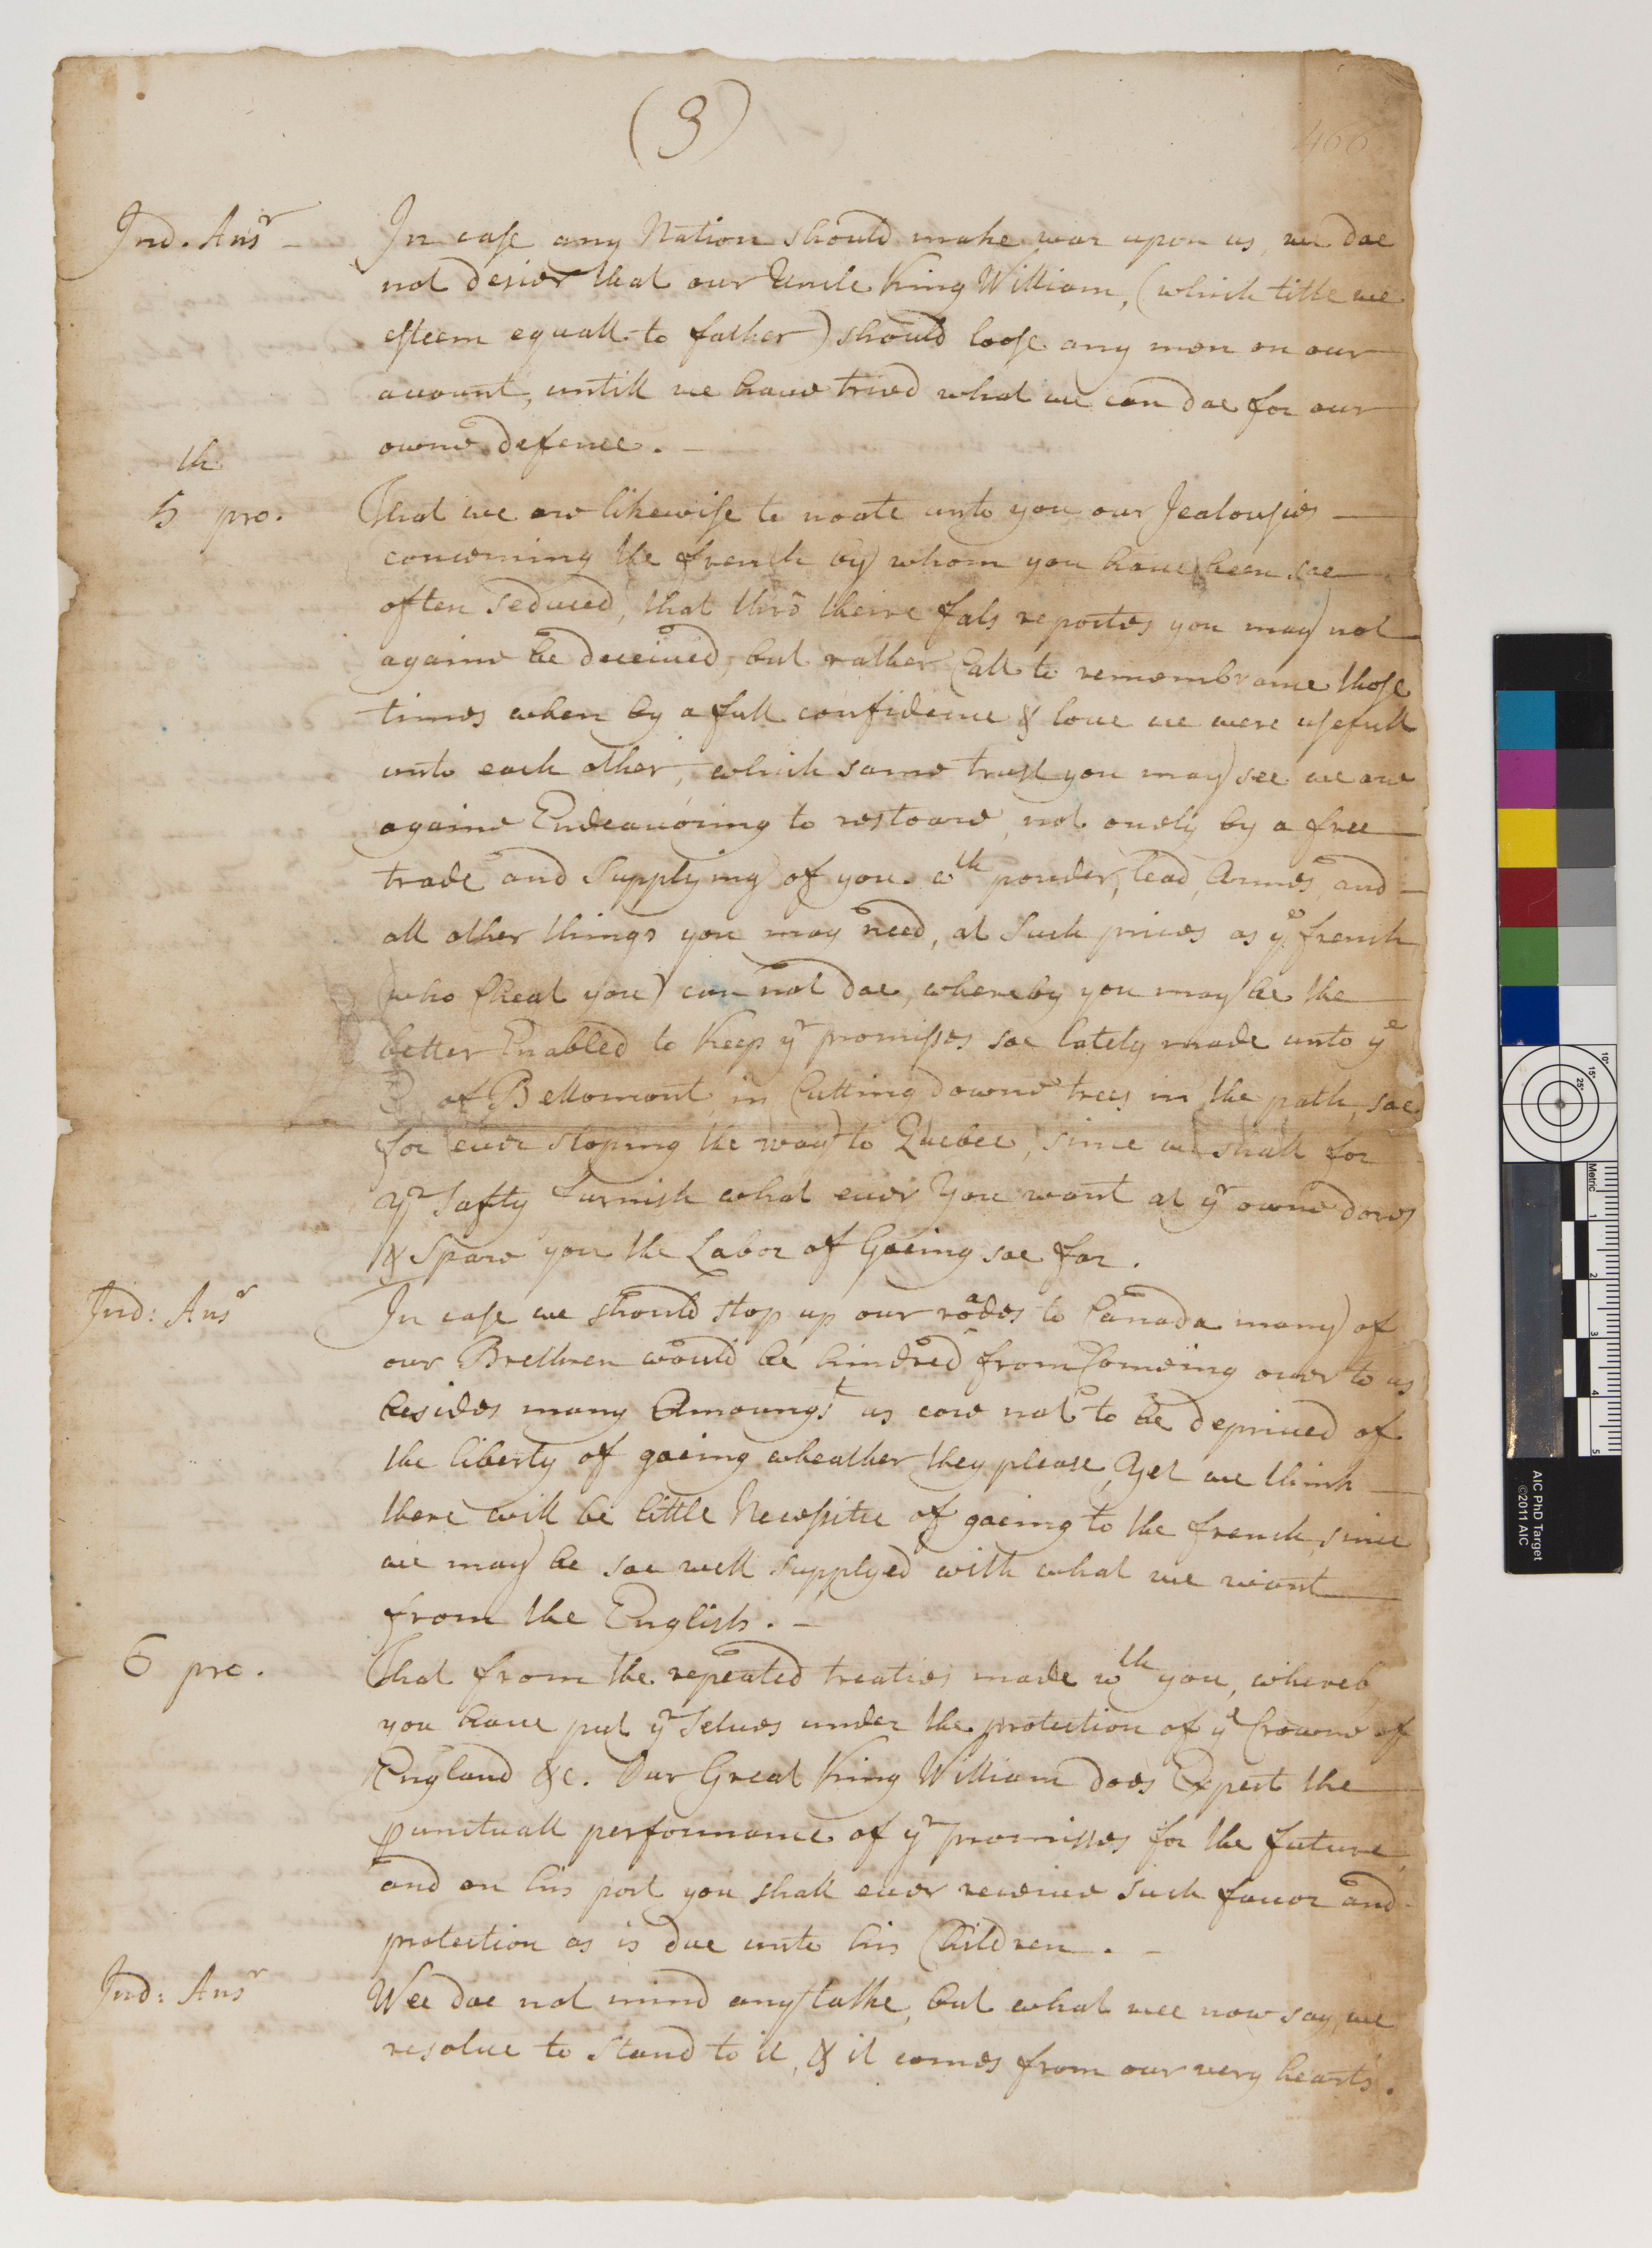 (3)
466
Ind. Ansr – In case any Nation should make war upon us, we doe
not desier that our Uncle King William, (which title we
esteem equall to father) should loose any men on our
account, untill we haue tried what we can doe for our
owne defence. –
5th pro. That we are likewise to noate unto you our Jealousies
concerning the french by whom you haue been soe
often seduced, that thrõ theire fals reportes you may not
againe be deceiued, but rather Call to remembrance those
times when by a full confidence & loue we were usefull
unto each other, which same trust you may see we are
againe Endeauóring to restoare, not onely by a free
trade and Supplying of you wth pouder, lead, Armes, and
all other things you may need, at Such prices as ye french
(who Cheat you) can not doe, whereby you may be the
better Enabled to Keep yr promisses soe lately made unto ye
of Bellomont, in Cutting downe trees in the path, soe
for euer stoping the way to Quebec, since we shall for
yr Safty furnish what euer You want at yr owne dores
& Spare you the Labor of Goeing soe far.
Ind: Ansr In case we should stop up our roades to Canada many of
our Brethren would be hindred from Comeing ouer to us
besides many Amoungst us care not to be depriued of
the liberty of goeing wheather they please, Yet we think
there will be little Necessitie of goeing to the french, since
we may be soe well supplyed with what we want
from the English. –
6 pro. That from the repeated treaties made wth you, whereby
you haue put yr Selues under the protection of ye Crowne of
England &c. Our Great King William does Expect the
punctuall performance of yr promisses for the future,
and on his part you shall euer receiue such fauor and
protection as is due unto his Children. –
Ind: Ansr Wee doe not mind any talke, but what wee now say, we
resolue to stand to it, & it comes from our very hearts.